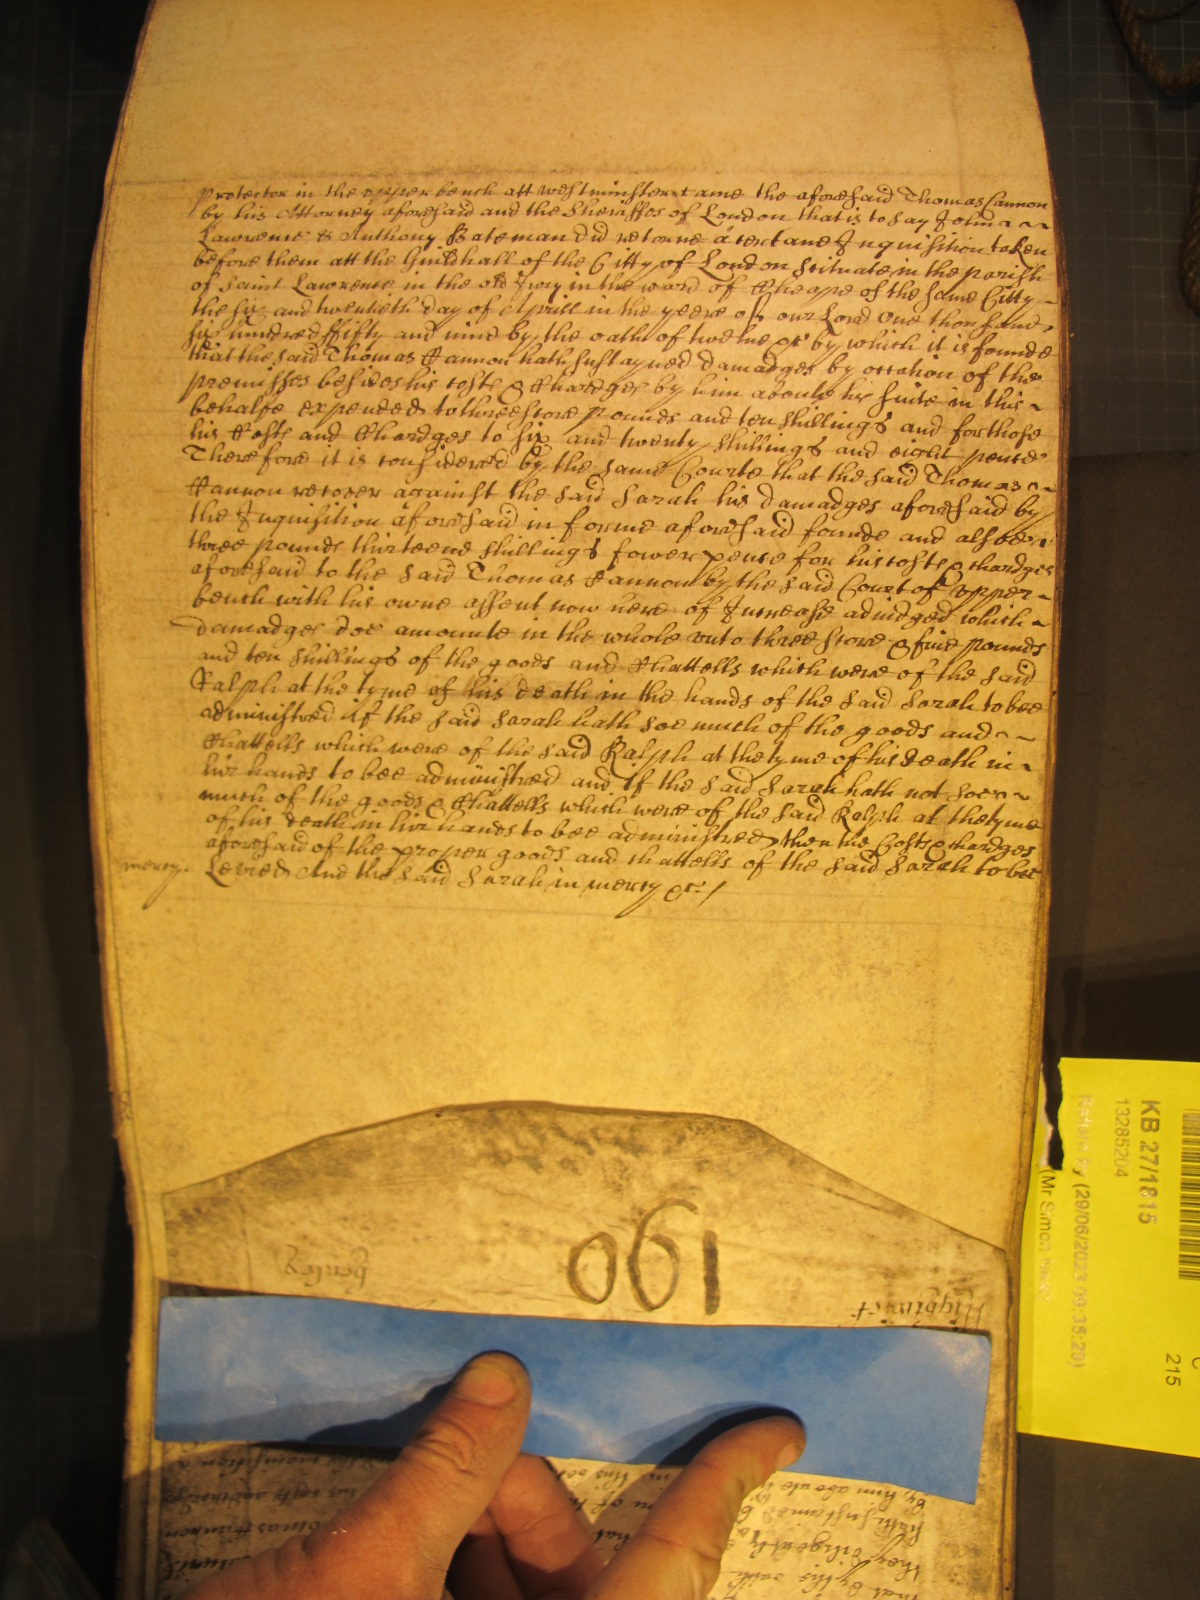 Protector in the upper bench att Westminster came the aforesaid Thomas Cannon
by his Attorney aforesaid and the Sheriffes of London that is to say John
Lawrence & Anthony Bateman did retorne a certaine Inquisition taken
before them att the Guildhall of the Citty of London scituate in the parish
of Saint Lawrence in the old Jury in the ward of Cheape of the same Citty
the six and twentieth day of Aprill in the yeere of our Lord One thousand
six hundred fifty and nine by the oath of twelve &c by which it is founde
that the said Thomas Cannon hath sustayned damadges by occation of the
premisses besides his costs & Chardges by him aboute his suite in this
behalfe expended to threescore pounds and ten shillings and for those
his Costs and Chardges to six and twenty shillings and eight pence
Therefore it is considered by the same Courte that the said Thomas
Cannon recover against the said Sarah his damadges aforesaid by
the Inquisition aforesaid in forme aforesaid founde and alsoe
three pounds thirteene shillings fower pence for his costs & chardges
aforesaid to the said Thomas Cannon by the said Court of upper
bench with his owne assent now here of Increase adiudged which
damadges doe amounte in the whole unto three score & five pounds
and ten shillings of the goods and Chattells which were of the said
Ralph at the tyme of his death in the hands of the said Sarah to bee
administred if the said Sarah hath soe much of the goods and
Chattells which were of the said Ralph at the tyme of his death in
hir hands to bee administred and if the said Sarah hath not soe
much of the goods & Chattells which were of the said Ralph at the tyme
of his death in hir hands to bee administred then the Costs & chardges
aforesaid of the proper goods and chattells of the said Sarah to bee
mercy. Levied And the said Sarah in mercy &c /
190
Henley
KB 27/1815
13285204
Return by (29/06/2023 09:35:29)
(Mr Simon
215